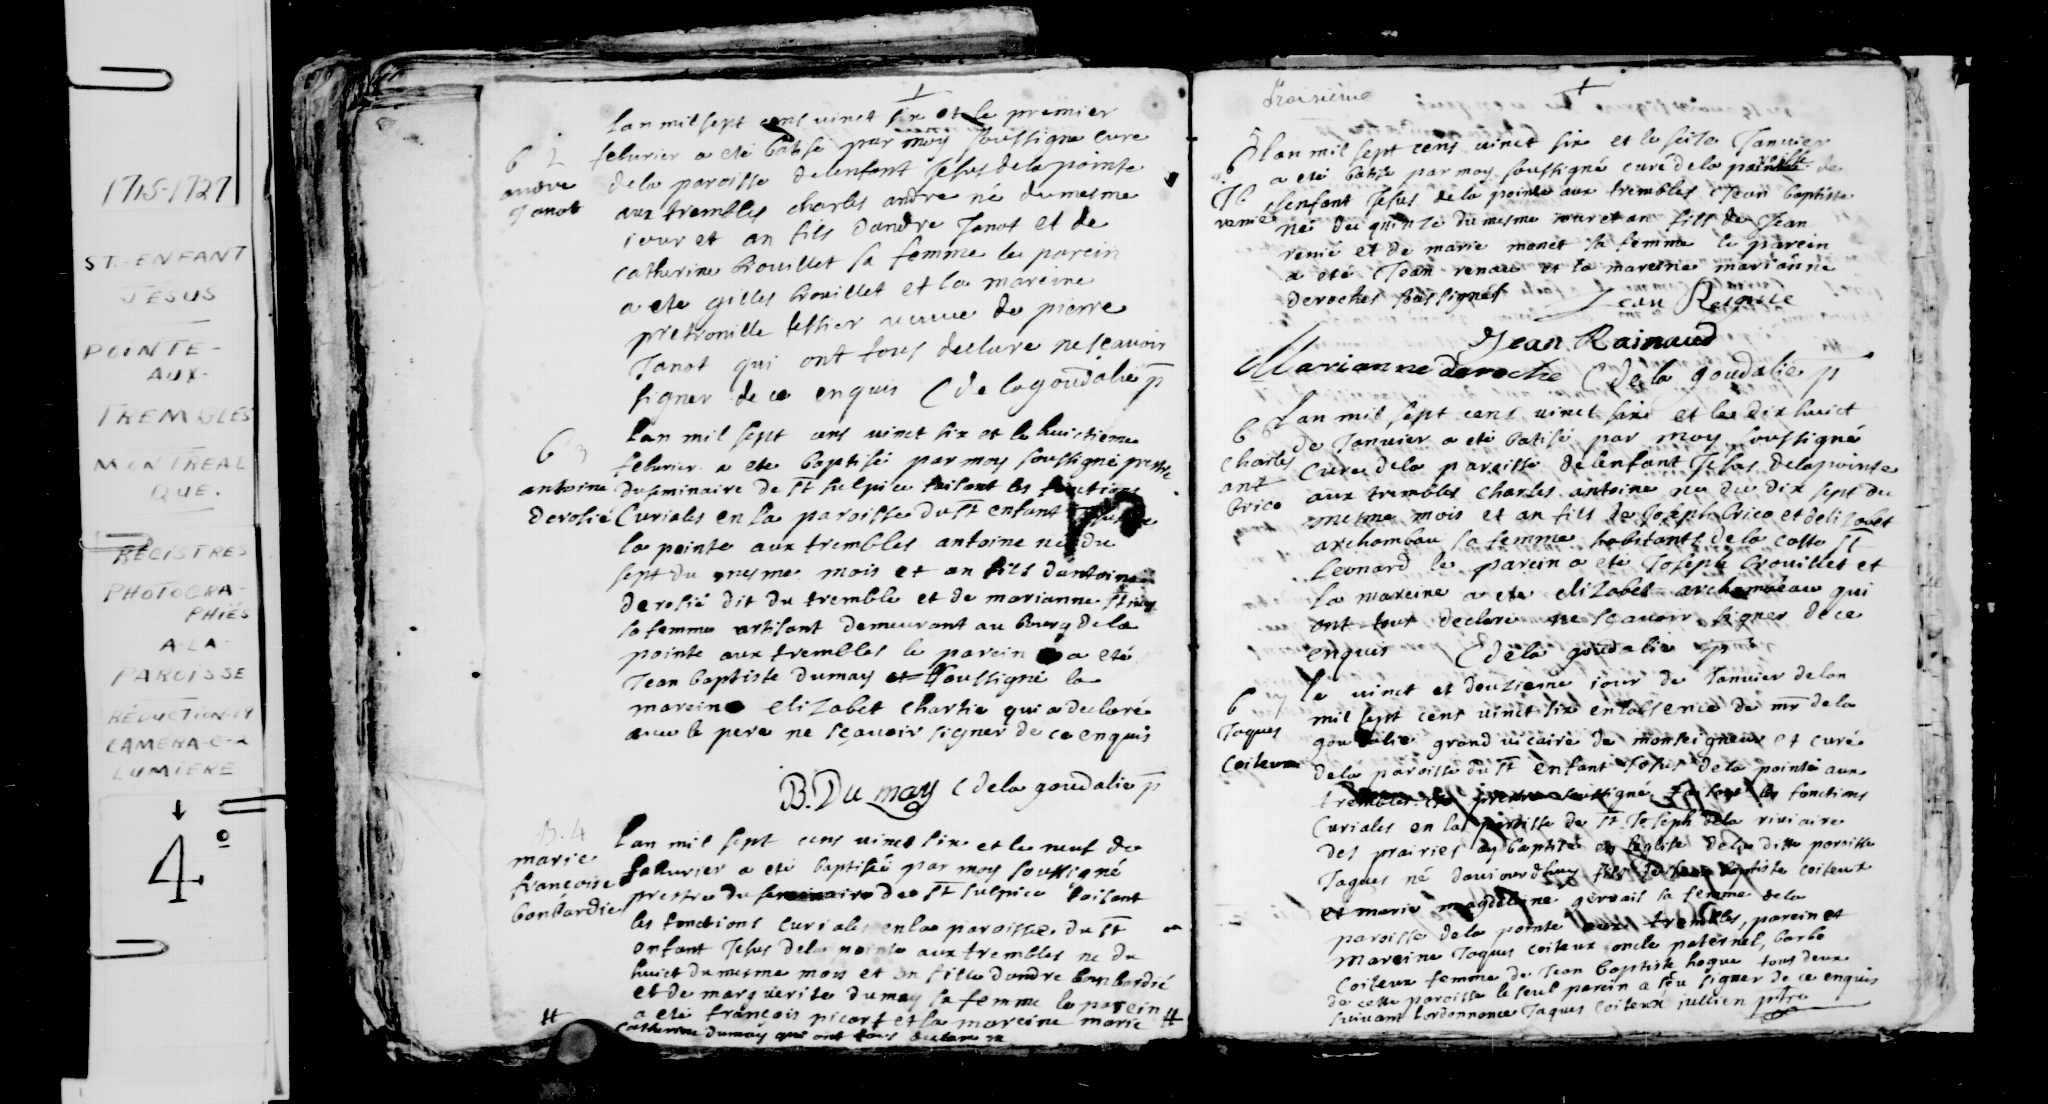 1715-1727
ST. ENFANT
JESUS
POINTE-
AUX-
TREMBLES
MONTREAL
QUE.
REGISTRES
PHOTOGRA-
PHIÉS
A-LA-
PAROISSE
RÉDUCTION-14
CAMERA-C-2
LUMIERE
4º
Lan mil sept cens vinct six et le premier
februrier a eté batisé par moy soussigné curé
de la paroisse de lenfant Jesus de la pointe
aux trembles charles andre né du mesme
iour et an fils dandre Janot et de
catherine brouillet sa femme le parein
a ete gilles brouillet et la mareine
pretronille tessier veuve de pierre
Janot qui ont tous declare ne scavoir
signer de ce enquis C de la goudalie p
b 2
andre
Janot
Lan mil sept cens vinct six et le huictieme
februrier a ete baptisé par moy soussigné prestre
du seminaire de st sulpice faisant les fonctions
Curiales en la paroisse du st enfant
la pointe aux trembles antoine né du
sept du mesme mois et an fils dantoine
derosié dit du tremble et de marianne
sa femme artisant demeurant au bourg de la
pointe aux trembles le parein a eté
Jean baptiste Dumay et soussigné la
mareine elizabet chartie qui a declaré
avec le pere ne sçavoir signer de ce enquis
B. Dumay C de la goudalie p
b 3
antoine
derosié
Lan mil sept cens vinct six et le neuf de
februrier a eté baptisé par moy soussigné
prestre du seminaire de st sulpice faisant
les fonctions curiales en la paroisse du st
enfant Jesus de la pointe aux trembles né du
huict du mesme mois et an fille dandre bonbardié
et de marguerite dumay sa femme le parein
a eté françois picart et la mareine marie #
# catherine dumay qui ont tous declare ne
B. 4
marie
françoise
bonbardie
troisieme
Lan mil sept cens vinct six et le seise Janvier
a eté batisé par moy soussigné curé de la paroisse de
lenfant Jesus de la pointe aux trembles Jean baptiste
né du quinze du mesme mois et an fils de Jean
renié et de marie monet sa femme le parein
a eté Jean renau et la mareine marianne
deroches soussignés Jean
Jean Rainaud
Marianne deroche C de la goudalie p
b
J b
renié
Lan mil sept cens vinct six et le dix huict
de Janvier a eté batisé par moy soussigné
Curé de la paroisse de lenfant Jesus de la pointe
aux trembles charles antoine né du dix sept du
mesme mois et an fils de Joseph brico et delizabet
archambau sa femme habitants de la coste st
Leonard le parein a eté Joseph brouillet et
la mareine a ete elizabet archambeau qui
ont tout declaré ne sçavoir signer de ce
enquis C de la goudalie p
b 6
charles
ant
brico
le vinct et deuzieme iour de Janvier de lan
mil sept cens vinct six en labsence de mr de la
goudalie grand vicaire de monseigneur et curé
de la paroisse du st enfant Jesus de la pointe aux
trembles prestre soussigné faisant les fonctions
Curiales en la paroisse de st Joseph de la riviaire
des prairies ay baptisé en leglise de la ditte paroisse
Jaques né daujourdhuy fils de Jean baptiste coiteux
et marie magdelaine gervais sa femme de la
paroisse de la pointe aux trembles, parein et
Mareine Jaques coiteux oncle paternel, barbe
Coiteux femme de Jean baptiste hogue tous deux
de cette paroisse le seul parein a sçu signer de ce enquis
suivant lordonnance Jaques Coiteux jullien ptre
b 7
Jaques
Coiteux